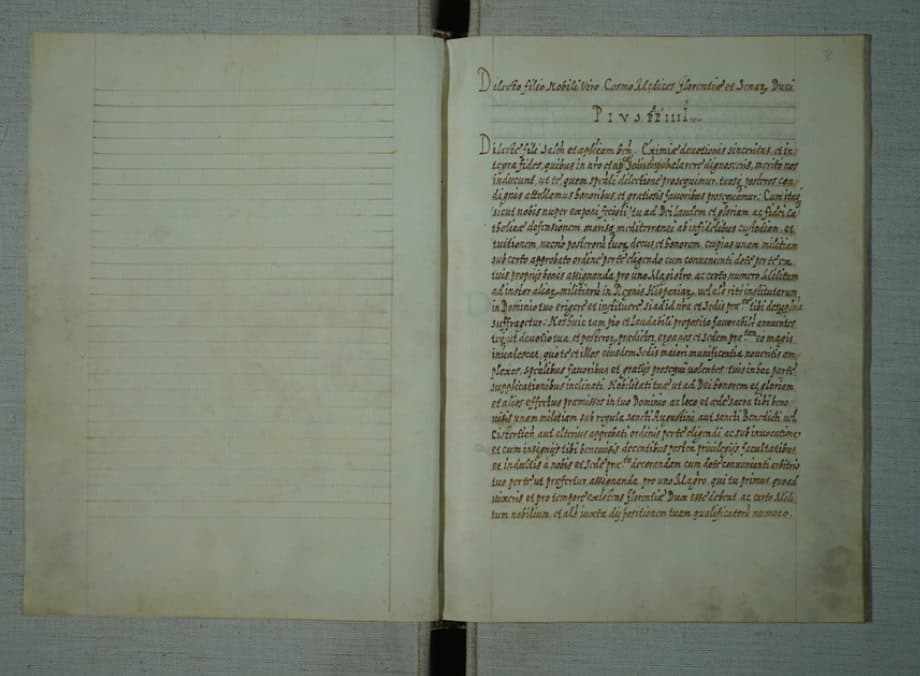 Dilecto filio Nobili Viro Cosmo Medices florentiæ et Senaꝝ Duci
PIVS PP IIII
Dilecte fili Salm̄ et aplicam ben. Eximiæ devotionis sinceritas, et in
tegra fides, quibus in nr̄o et aplicæ Sedis conspectu clarere dignosceris, merito nos
inducunt, ut te, quem sp̄ali dilectione prosequimur, tuosq posteros con
dignis attollamus honoribus, et gratiosis favoribus prosequamur. Cum itaq
sicut nobis nuper exponi fecisti tu ad Dei laudem et gloriam, ac fidei Ca
tholicæ defensionem, marisq mediterranei ab infidelibus custodiam, et
tuitionem, necnō posteroru tuoꝝ decus et honorem, cupias unam militiam
sub certo approbato ordine per te eligendo cum convenienti dote per te ex
tuis proprijs bonis assignanda pro uno Magistro, ac certo numero Militum
ad instar aliaꝝ militiaru in Regnis Hispaniaꝝ, vel als rite institutarum
in Dominio tuo erigere et instituere, si ad id nr̄a et Sedis præ^tæ tibi
suffragetur. Nos huic tam pio et laudabili proposito favorabilr annuentes
teq, ut devotio tua, et posteroꝝ prædictoꝝ, erga nos et Sedem præ^tam eo magis
invalescat, quo te et illos eiusdem Sedis maiori munificentia noveritis am
plexos, sp̄alibus favoribus et gratijs prosequi volentes, tuis in hac parte
supplicationibus inclinati, Nobilitati tuæ ut ad Dei honorem et gloriam
et alios effectus præmissos in tuo Dominio, ac loco, et æde sacra tibi bene
visis unam militiam sub regula sancti Augustini, aut sancti Benedicti vel
Cistertien aut alterius approbati ordinis per te eligendi, ac sub invocatione
et cum insignijs tibi benevisis decentibus
et indultis à nobis et Sede præ^ta decorandam cum dote convenienti arbitrio
tuo per te, ut præfertur, assignanda, pro uno Magro, qui tu primus, quoad
vixeris et pro tempore existens florentiæ Dux esse debent, ac certo Mili
tum nobilium, et als iuxta dispositionem tuam qualificatoru numero,